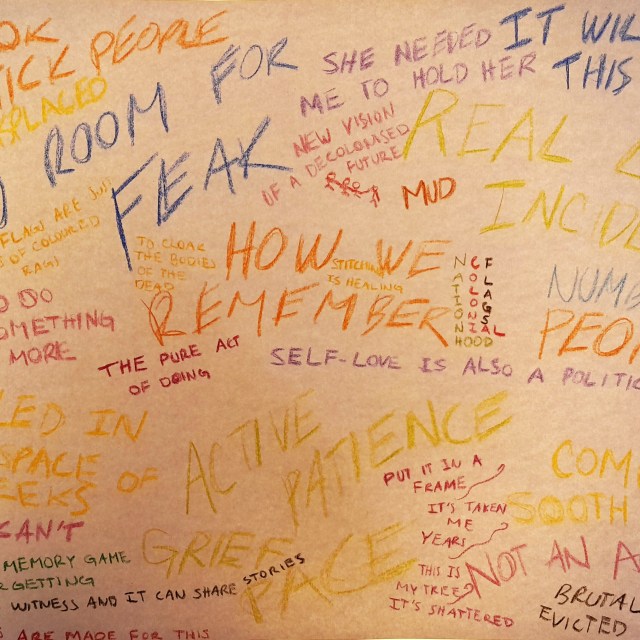 PEOPLE
ROOM FOR
FEAK
SHE NEEDED
ME TO HOLD HER
IT WIL
THIS
NEW VISION
OF A DECOLONISED
FUTURE
REAL
MUD
INCIDE
FLAW ARE
OF COLOURED
TO CLOAK
THE BODIES
OF THE
DEAD
HOW WE
REMEMBER
STITCHING
IS HEALING
NATIONHOOD
COLONIAL
FLAGS
NUMB
PEO
DO
OMETHING
MORE
THE PURE ACT
OF DOING
SELF-LOVE IS ALSO A POLITIC
ED IN
SPACE OF
EKS
CAN'T
ACTIVE
PATIENCE
PUT IT IN A
FRAME
IT'S TAKEN
ME
YEARS
THIS IS
MY TREE
IT'S SHATTERED
COM
SOOTH
NOT AN A
BRUTAL
EVICTED
MEMORY GAME
RGETTING
GRIEF
PACE
WITNESS AND IT CAN SHARE STORIES
S ARE MADE FOR THIS